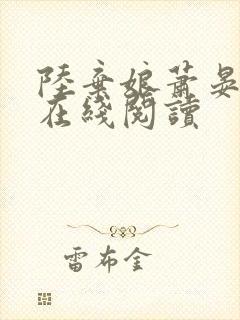 陸棄娘蕭晏
在綫閱讀
雷布金